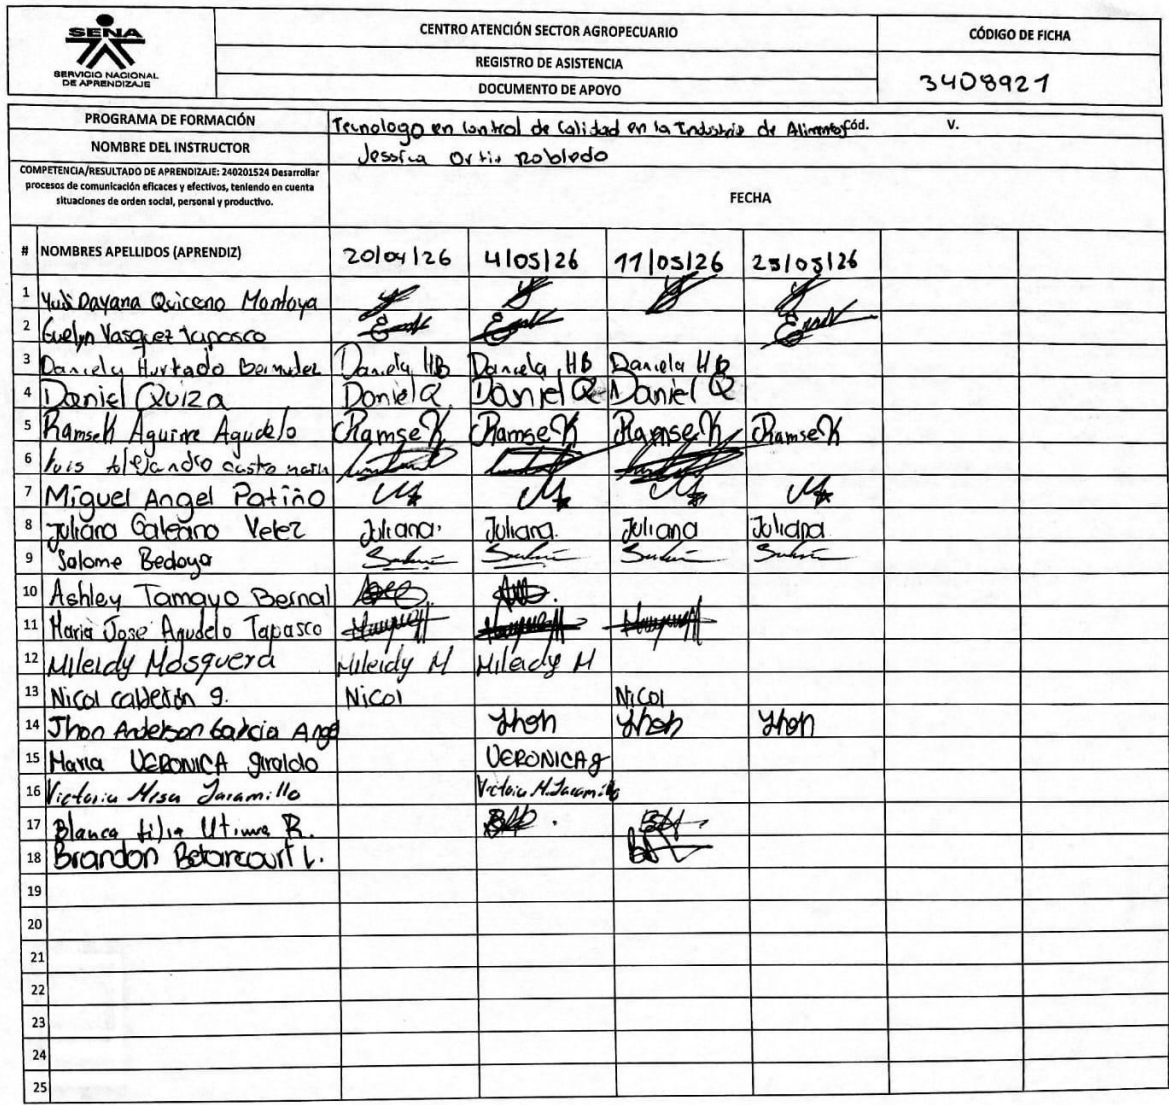 SENA
SERVICIO NACIONAL
DE APRENDIZAJE
CENTRO ATENCIÓN SECTOR AGROPECUARIO
REGISTRO DE ASISTENCIA
DOCUMENTO DE APOYO
CÓDIGO DE FICHA
3408921
PROGRAMA DE FORMACIÓN
Tecnologo en control de Calidad en la Industria de Alimentos Cód. V.
NOMBRE DEL INSTRUCTOR
Jessica Ortiz Robledo
COMPETENCIA/RESULTADO DE APRENDIZAJE: 240201524 Desarrollar
procesos de comunicación eficaces y efectivos, teniendo en cuenta
situaciones de orden social, personal y productivo.
FECHA
# NOMBRES APELLIDOS (APRENDIZ) 20/04/26 4/05/26 11/05/26 25/05/26
1 Yudi Dayana Quiceno Montoya
2 Evelyn Vasquez Tapasco
3 Daniela Hurtado Bermudez Daniela HB Daniela HB Daniela HB
4 Daniel Quiza Daniel Q Daniel Q Daniel Q
5 Ramsek Aguirre Agudelo Ramsek Ramsek Ramsek Ramsek
6 Luis Alejandro castro marin
7 Miguel Angel Patiño
8 Juliana Galeano Velez Juliana. Juliana. Juliana Juliana
9 Salome Bedoya
10 Ashley Tamayo Bernal
11 Maria Jose Agudelo Tapasco
12 Mileidy Mosquera Mileidy M Mileidy M
13 Nicol calderón g. Nicol Nicol
14 Jhon Anderson Garcia Angel Jhon Jhon Jhon
15 Maria VERONICA giraldo VERONICA g
16 Victoria Mesa Jaramillo Victoria M. Jaramillo
17 Blanca Utima R.
18 Brandon Betancourt L.
19
20
21
22
23
24
25